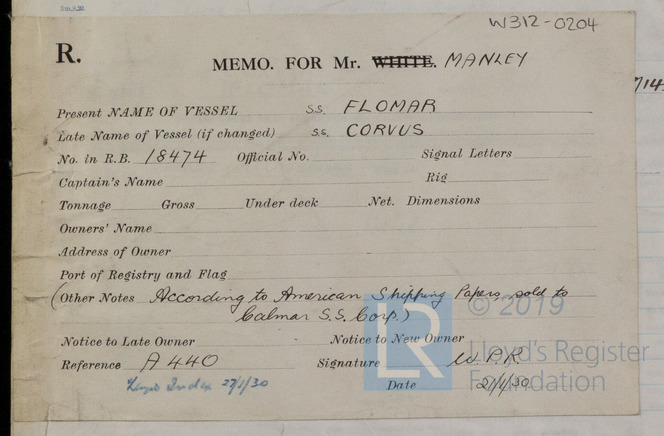 W312-0204
R.
MEMO. FOR Mr. WHITE. MANLEY
Present NAME OF VESSEL S.S. FLOMAR
Late Name of Vessel (if changed) S.S. CORVUS
No. in R.B. 18474 Official No. Signal Letters
Captain's Name Rig
Tonnage Gross Under deck Net. Dimensions
Owners' Name
Address of Owner
Port of Registry and Flag
(Other Notes According to American Shipping Papers, sold to
Calmar S.S. Corp.)
Notice to Late Owner Notice to New Owner
Reference A 440 Signature W.P.R
Index 27/1/30 Date 21/1/30
LR © 2019
Lloyd's Register
Foundation